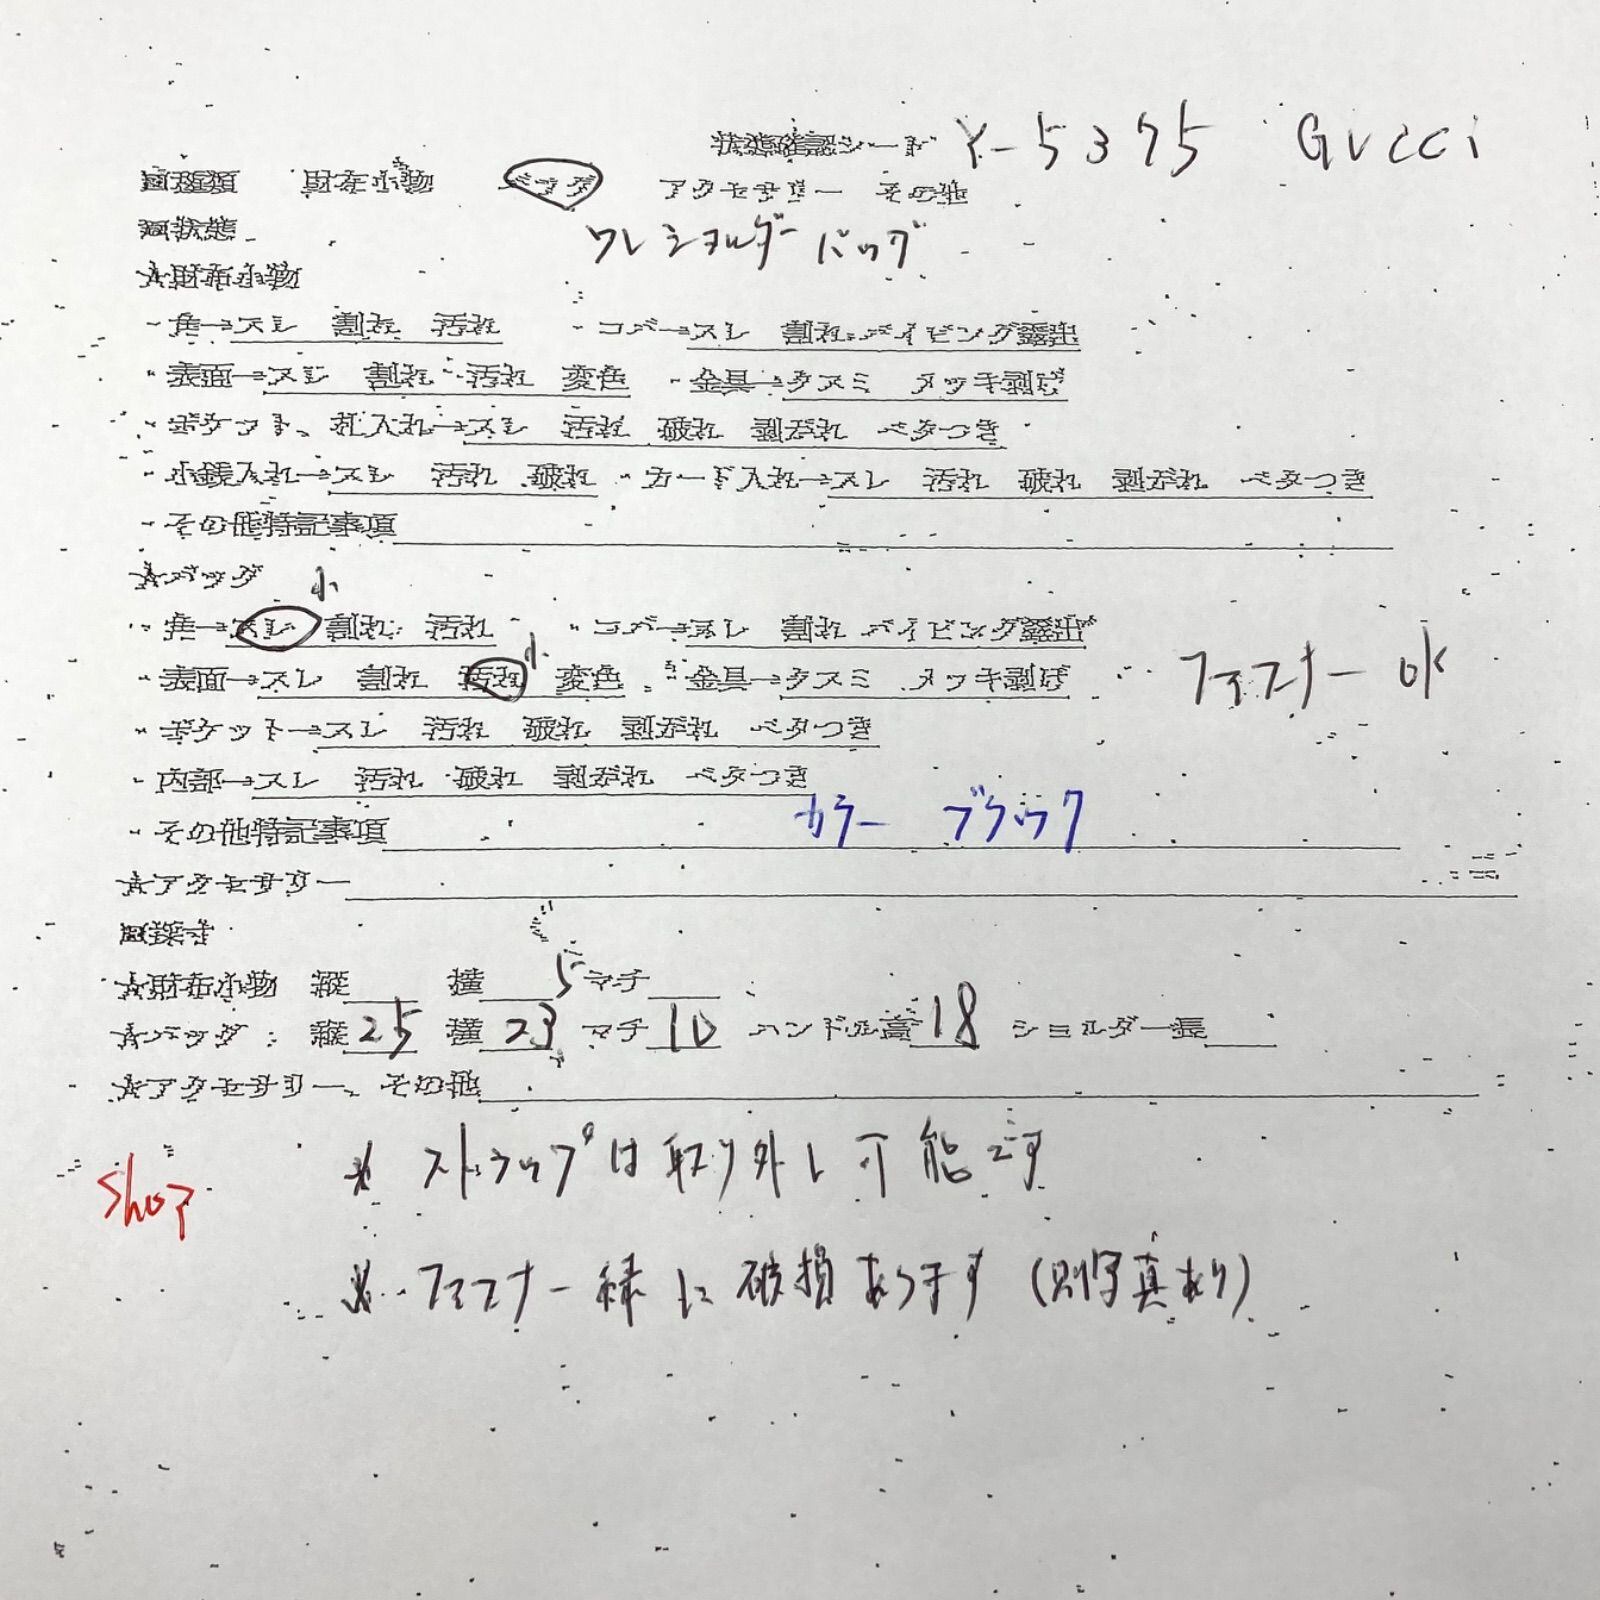 状態確認シート Y-5375 GUCCI
回種類 財布小物 バッグ アクセサリー その他
回状態 ワンショルダーバッグ
☆財布小物
・角→スレ 割れ 汚れ ・コバ→スレ 割れ パイピング露出
・表面→スレ 割れ 汚れ 変色 ・金具→クスミ メッキ剥げ
・ポケット、札入れ→スレ 汚れ 破れ 剥がれ ベタつき
・小銭入れ→スレ 汚れ 破れ ・カード入れ→スレ 汚れ 破れ 剥がれ ベタつき
・その他特記事項
☆バッグ 小
・角→スレ 割れ 汚れ ・コバ→スレ 割れ パイピング露出
・表面→スレ 割れ 汚れ 小 変色 ・金具→クスミ メッキ剥げ ファスナー OK
・ポケット→スレ 汚れ 破れ 剥がれ ベタつき
・内部→スレ 汚れ 破れ 剥がれ ベタつき
・その他特記事項 カラー ブラック
☆アクセサリー
回採寸
☆財布小物 縦 横 5 マチ
☆バッグ:縦 25 横 23 マチ 10 ハンドル高 18 ショルダー長
☆アクセサリー、その他
Shop ※ ストラップは取り外し可能です
※ ファスナー縁に破損あります(別写真あり)